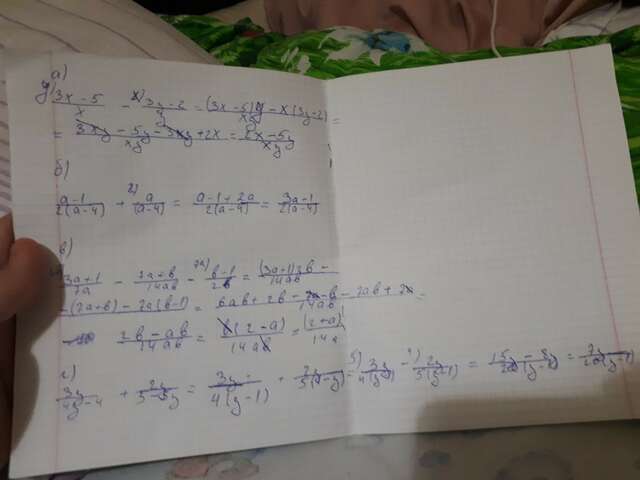 а)
(3x-5)/x - (3y-2)/y = ((3x-5)y - x(3y-2))/xy =
= (3xy - 5y - 3xy + 2x)/xy = (2x-5y)/xy
б)
(a-1)/2(a-4) + 2) a/(a-4) = (a-1+2a)/2(a-4) = (3a-1)/2(a-4)
в)
(3a+1)/7a - (2a+b)/14ab - 7a) (b-1)/2b = (3a+1)2b -/14ab
-(2a+b) - 7a(b-1) = 6ab + 2b - 2a - b - 7ab + 7a/14ab =
2b-ab/14ab = b(2-a)/14ab = (2+a)/14a
г)
3y/4y-4 + 2y/5-5y = 3y/4(y-1) + 2y/5(1-y) = 5) 3y/4(y-1) - 2y/5(y-1) = 15y - 8y/20(y-1) = 7y/20(y-1)